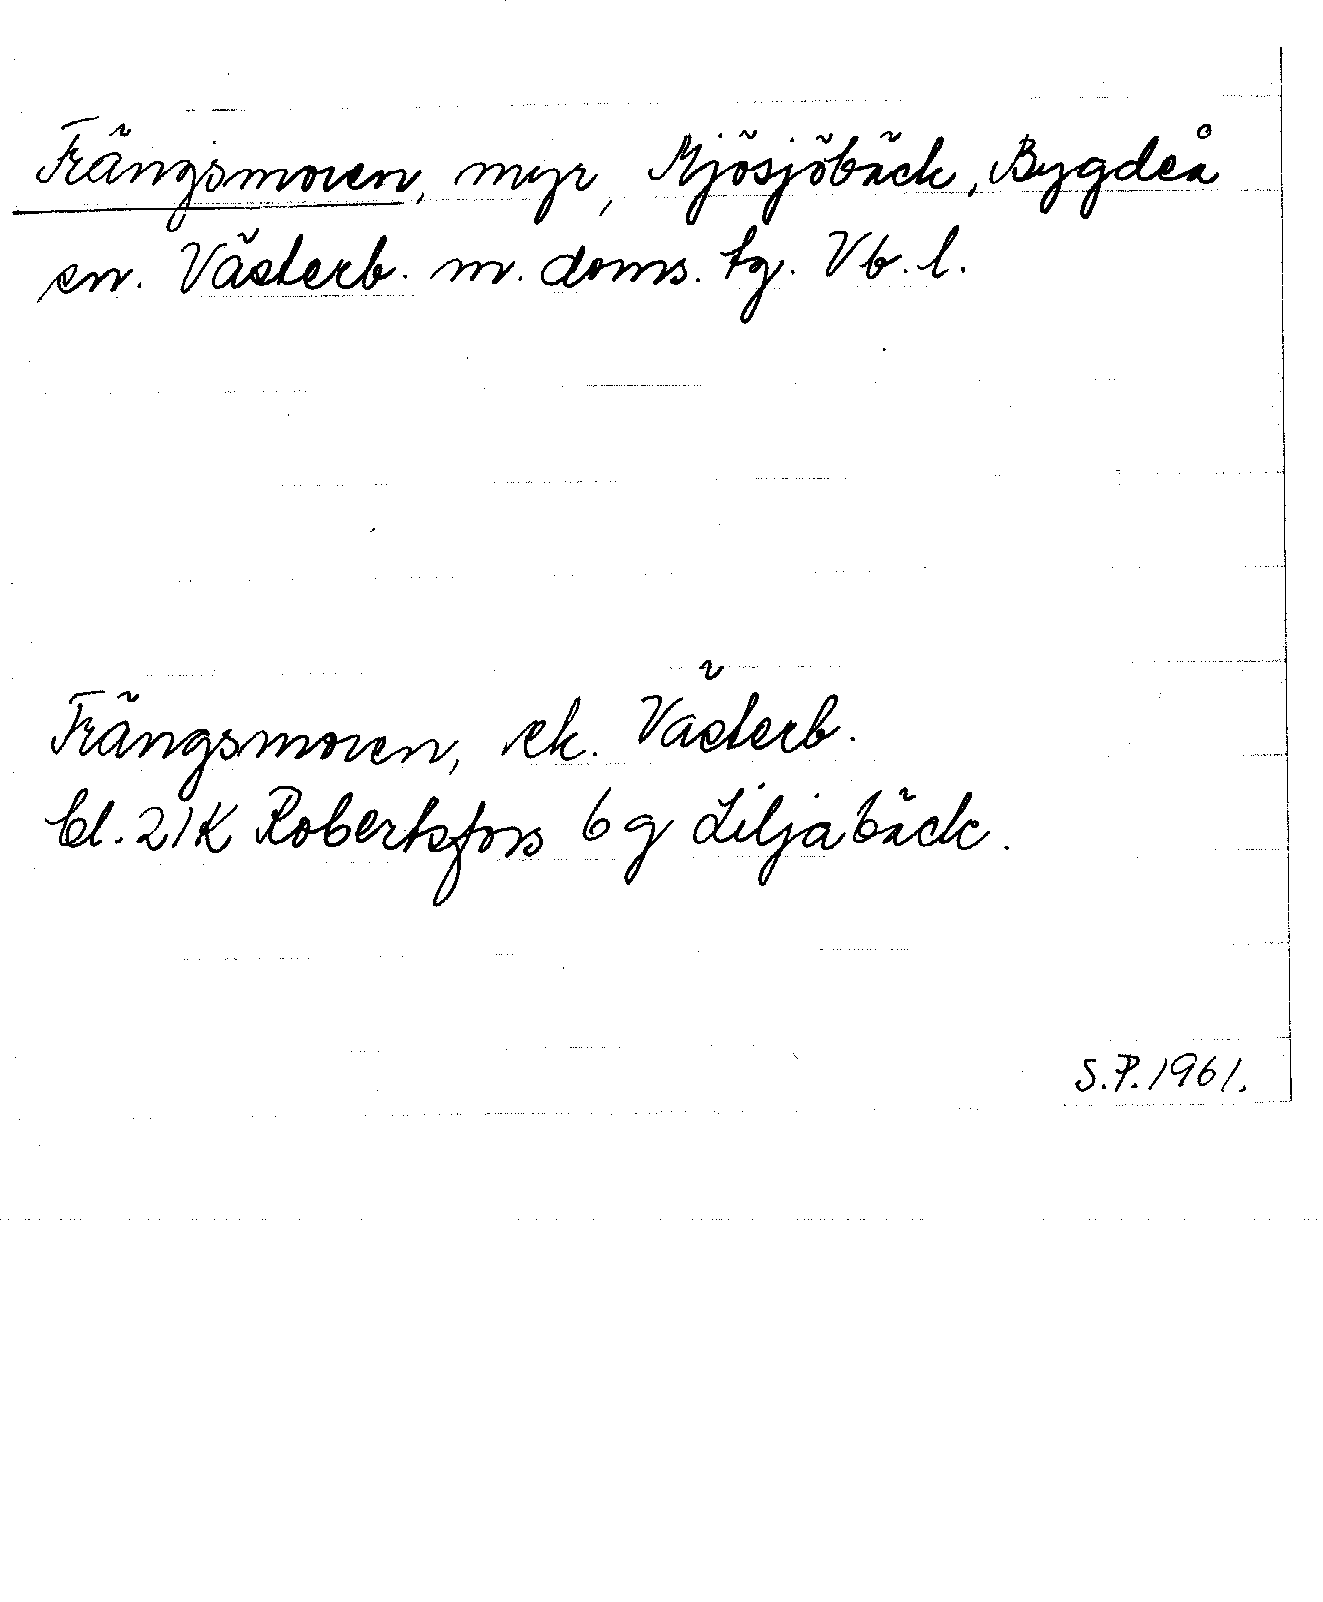 Trängsmoren, myr, Mjösjöbäck, Bygdeå
sn. Västerb. m. doms. tg. Vb. l.
Trängsmoren, ek. Västerb.
bl. 21K Robertsfors 6 g Liljabäck.
S.P. 1961.